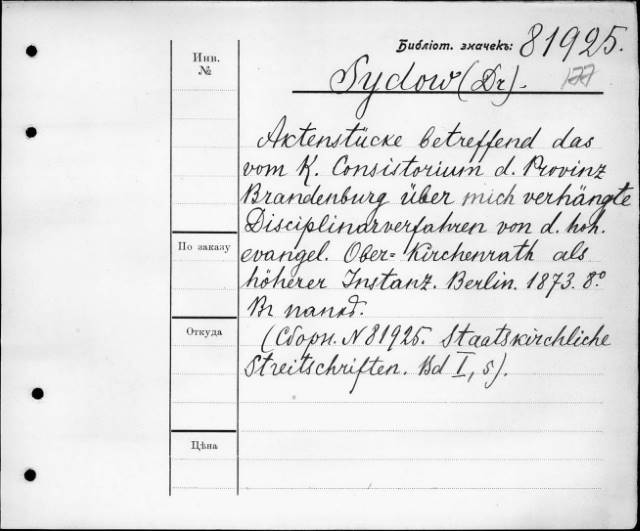 Библіот. значекъ: 81925.
Инв.
№
Sydow (Dr). 177
Aktenstücke betreffend das
vom K. Consistorium d. Provinz
Brandenburg über mich verhängte
Disciplinarverfahren von d. hoh.
По заказу
evangel. Ober=Kirchenrath als
höherer Instanz. Berlin. 1873. 8º
Въ папкѣ.
Откуда
(Сборн. N 81925. Staatskirchliche
Streitschriften. Bd I, 5).
Цѣна